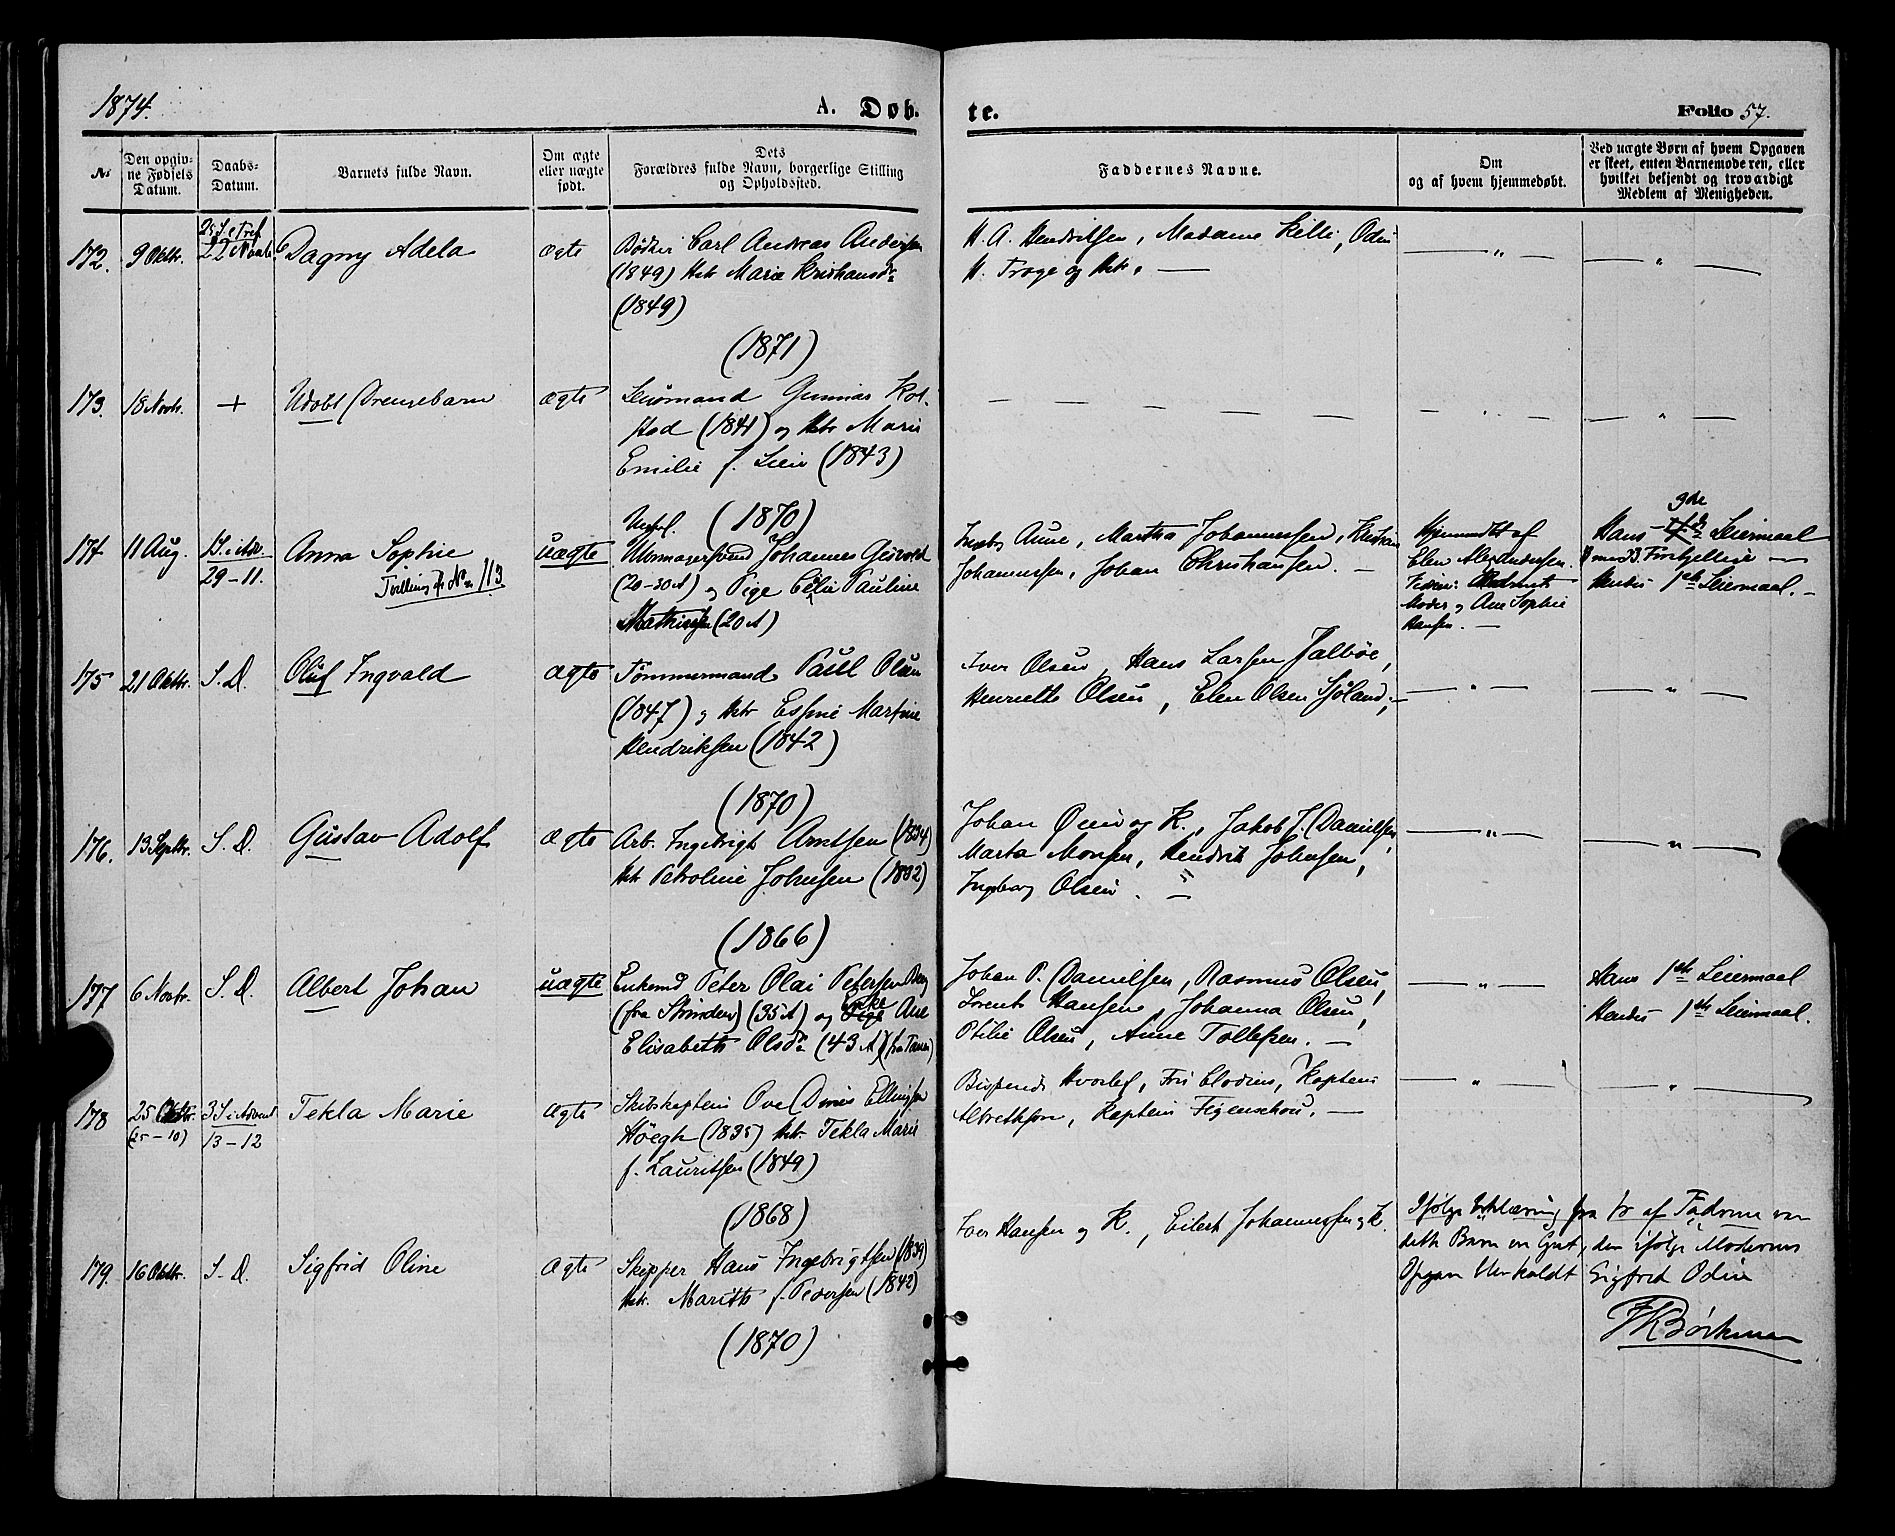 1874.
A. Døb-
te.
Folio 57.
No
Den opgiv-
ne Fødsels
Datum.
Daabs-
Datum.
Barnets fulde Navn.
Om ægte
eller uægte
født.
Dets
Forældres fulde Navn, borgerlige Stilling
og Opholdssted.
Faddernes Navne.
Om
og af hvem hjemmedøbt.
Ved uægte Børn af hvem Opgaven
er skeet, enten Barnemoderen, eller
hvilket bekjendt og troværdigt
Medlem af Menigheden.
172.
9 Oktr.
22 Novbr.
Dagny Adela
ægte
Bødker Carl Andreas Andersen
(1849) Hst. Marie Kristiansd.
(1849)
(1871)
H. A. Hendriksen, Madame Killi, Odin
H. Trøge og Hst. —
— " —
— " —
173.
18 Novbr.
+
Udøbt Drengebarn
ægte
Lensmand Gunnar Kol-
stad (1841) og Hst. Marie
Emilie f. Lie (1843)
(1870)
— — — — — —
— " —
— " —
174
11 Aug.
1 S. i Adv.
29-11.
Anna Sophie
Tvilling til No 113
uægte
Ungk. Uhrmagersvend Johannes
(20-30 A) og Pige Celie Pauline
Mathisen (20 A)
Aune, Martha Johannessen, Kristian
Johannessen, Johan Christiansen. —
Hjemmedøbt af
Elen Andersen.
Moder og Ane Sophie
Hansen. —
Hans 2de Leiermaal
Hendes 1ste Leiermaal. —
175
21 Oktr.
S. D.
Oluf Ingvald
ægte
Tømmermand Paul Olsen
(1847) og Hst. Esine Martine
Hendriksen (1842)
(1870)
Iver Olsen, Hans Larsen Jalbøe,
Henriette Olsen, Elen Olsen Sjøland, —
— " —
— " —
176.
13 Septbr.
S. D.
Gustav Adolf
ægte
Arb. Ingebrigt Arntsen (1834)
Hst. Petroline Johnsen (1832)
(1866)
Johan Øien og K., Jakob J. Danielsen,
Marta Monsen, Hendrik Johnsen,
Ingeborg Olsen. —
— " —
— " —
177
6 Novbr.
S. D.
Albert Johan
uægte
Enkemd Peter Olai Petersen Berg
(fra Strinden) (35 A) og Enke Ane
Elisabeth Olsd. (43 A) (fra Tanen)
Johan P. Danielsen, Rasmus Olsen,
Lorents Hansen, Johanna Olsen,
Otilie Olsen, Anne Tollefsen. —
— " —
Hans 1ste Leiermaal
Hendes 1ste Leiermaal.
178
25 Oktr.
(25-10)
3 S. i Advent
13-12
Tekla Marie
ægte
Skibskaptein Ove Dines Ellingsen
Höegh (1835) Hst. Tekla Marie
f. Lauritsen (1849)
(1868)
Bispinde Hvoslef, Fru Clodius, Kaptein
Albrethsen, Kaptein Figenschou. —
— " —
— " —
179.
16 Oktr.
S. D.
Sigfrid Oline
ægte
Skipper Hans Ingebrigtsen (1839)
Hst. Marith f. Pedersen (1842)
(1870)
Iver Hansen og K., Eilert Johannessen og K.
Ifølge Erklæring fra to af Fadderne var
dette Barn en Gut, der ifølge Moderens
Opgave blev kaldt Sigfred Odin
FKBørkman